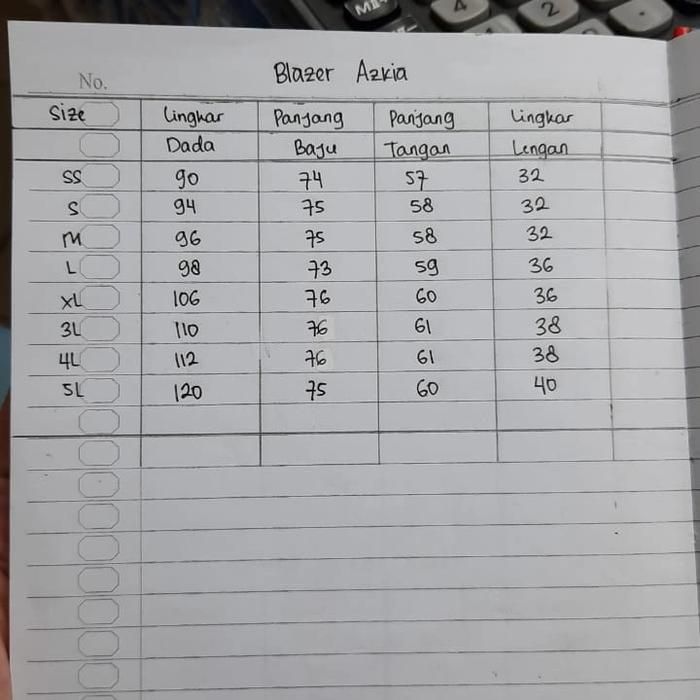 Blazer Azkia
No.
Size Lingkar Panjang Panjang Lingkar
Dada Baju Tangan Lengan
SS 90 74 57 32
S 94 75 58 32
M 96 75 58 32
L 98 73 59 36
XL 106 76 60 36
3L 110 76 61 38
4L 112 76 61 38
5L 120 75 60 40
4
2